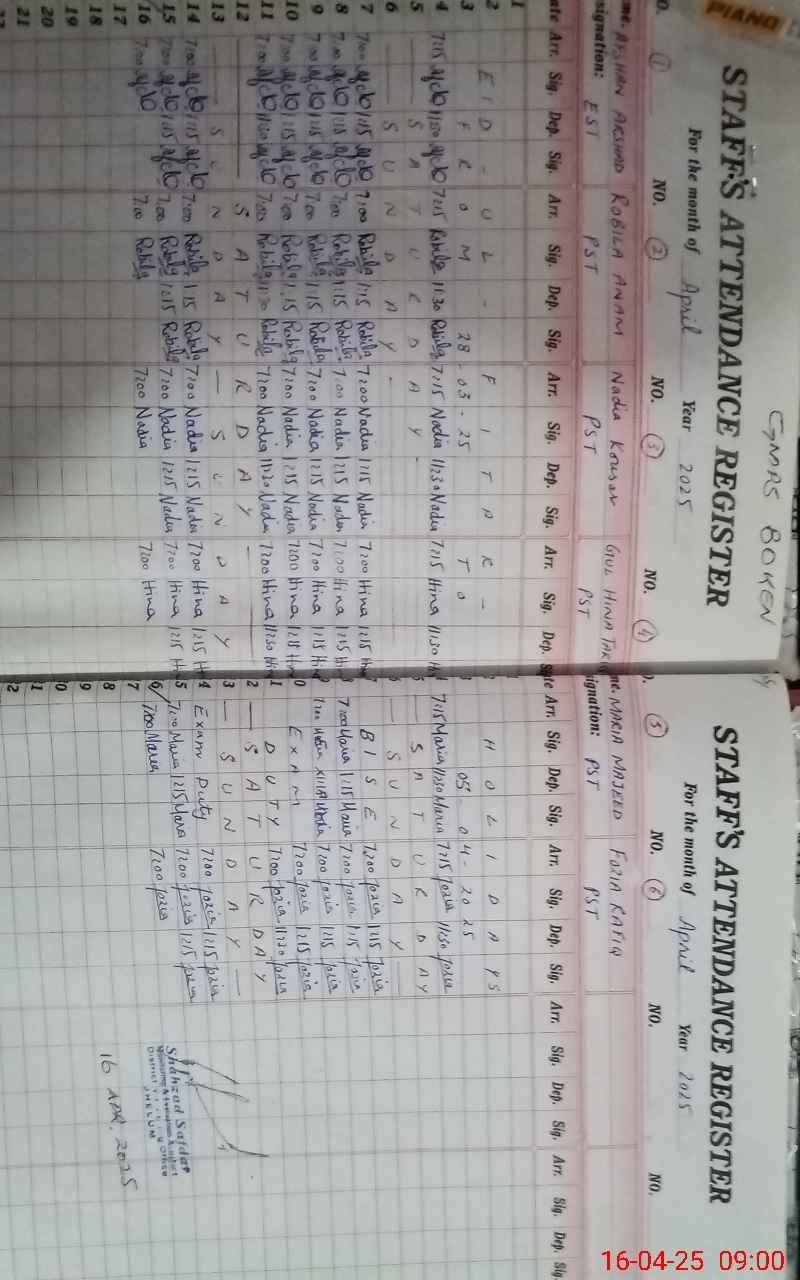 PIANO
GMPS BOKEN
STAFF'S ATTENDANCE REGISTER
For the month of April Year 2025
NO. (1) NO. (2) NO. (3) NO. (4)
me. AFSHAN ARSHAD ROBILA ANAM Nadia Kousar GUL HINA TARIQ
signation: EST PST PST PST
ate Arr. Sig. Dep. Sig. Arr. Sig. Dep. Sig. Arr. Sig. Dep. Sig. Arr. Sig. Dep.
1
2 EID - UL - FITAR -
3 FROM 28-03-25 TO
4 7:15 11:30 7:15 Robila 11:30 Robila 7:15 Nadia 11:30 Nadia 7:15 Hina 11:30
5 — SATURDAY -
6 — SUNDAY -
7 7:00 1:15 7:00 Robila 1:15 Robila 7:00 Nadia 1:15 Nadia 7:00 Hina 1:15
8 7:00 1:15 7:00 Robila 1:15 Robila 7:00 Nadia 1:15 Nadia 7:00 Hina 1:15
9 7:00 1:15 7:00 Robila 1:15 Robila 7:00 Nadia 1:15 Nadia 7:00 Hina 1:15
10 7:00 1:15 7:00 Robila 1:15 Robila 7:00 Nadia 1:15 Nadia 7:00 Hina 1:15
11 7:00 11:30 7:00 Robila 11:30 Robila 7:00 Nadia 11:30 Nadia 7:00 Hina 11:30
12 — SATURDAY —
13 — SUNDAY — SUNDAY
14 7:00 1:15 7:00 Robila 1:15 Robila 7:00 Nadia 1:15 Nadia 7:00 Hina 1:15
15 7:00 1:15 7:00 Robila 1:15 Robila 7:00 Nadia 1:15 Nadia 7:00 Hina 1:15
16 7:00 7:00 Robila 7:00 Nadia 7:00 Hina
17
18
19
20
21
STAFF'S ATTENDANCE REGISTER
For the month of April Year 2025
(5) NO. (6) NO. NO.
me. MARIA MAJEED FOZIA RAFIQ
signation: PST PST
ate Arr. Sig. Dep. Sig. Arr. Sig. Dep. Sig. Arr. Sig. Dep. Sig. Arr. Sig. Dep. Sig.
HOLIDAYS
05-04-2025
7:15 Maria 11:30 Maria 7:15 fozia 11:30 fozia
— SATURDAY
— SUNDAY —
BISE 7:00 fozia 1:15 fozia
7:00 Maria 1:15 Maria 7:00 fozia 1:15 fozia
7:00 Maria Maria 7:00 fozia 1:15 fozia
0 EXAM 7:00 fozia 1:15 fozia
1 DUTY 7:00 fozia 11:30 fozia
2 — SATURDAY
3 — SUNDAY —
4 Exam Duty 7:00 fozia 1:15 fozia
5 7:00 Maria 1:15 Maria 7:00 fozia 1:15 fozia
6 7:00 Maria 7:00 fozia
7
8
9
0
1
2
Shahzad Safdar
Monitoring & Evaluation Assistant
JHELUM
16 APR, 2025
16-04-25 09:00